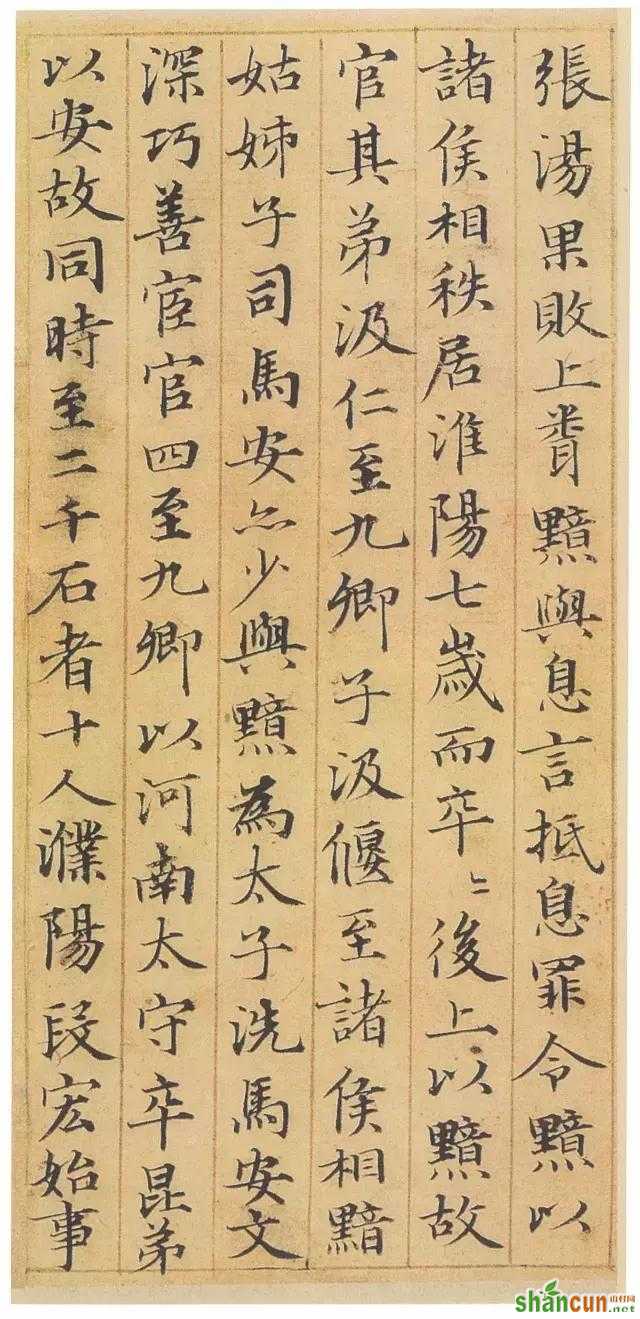 張湯果敗上聞黯與息言抵息罪令黯以
諸侯相秩居淮陽七歲而卒〻後上以黯故
官其弟汲仁至九卿子汲偃至諸侯相黯
姑姊子司馬安亦少與黯為太子洗馬安文
深巧善宦官四至九卿以河南太守卒昆弟
以安故同時至二千石者十人濮陽段宏始事
shancun
山村网
.net